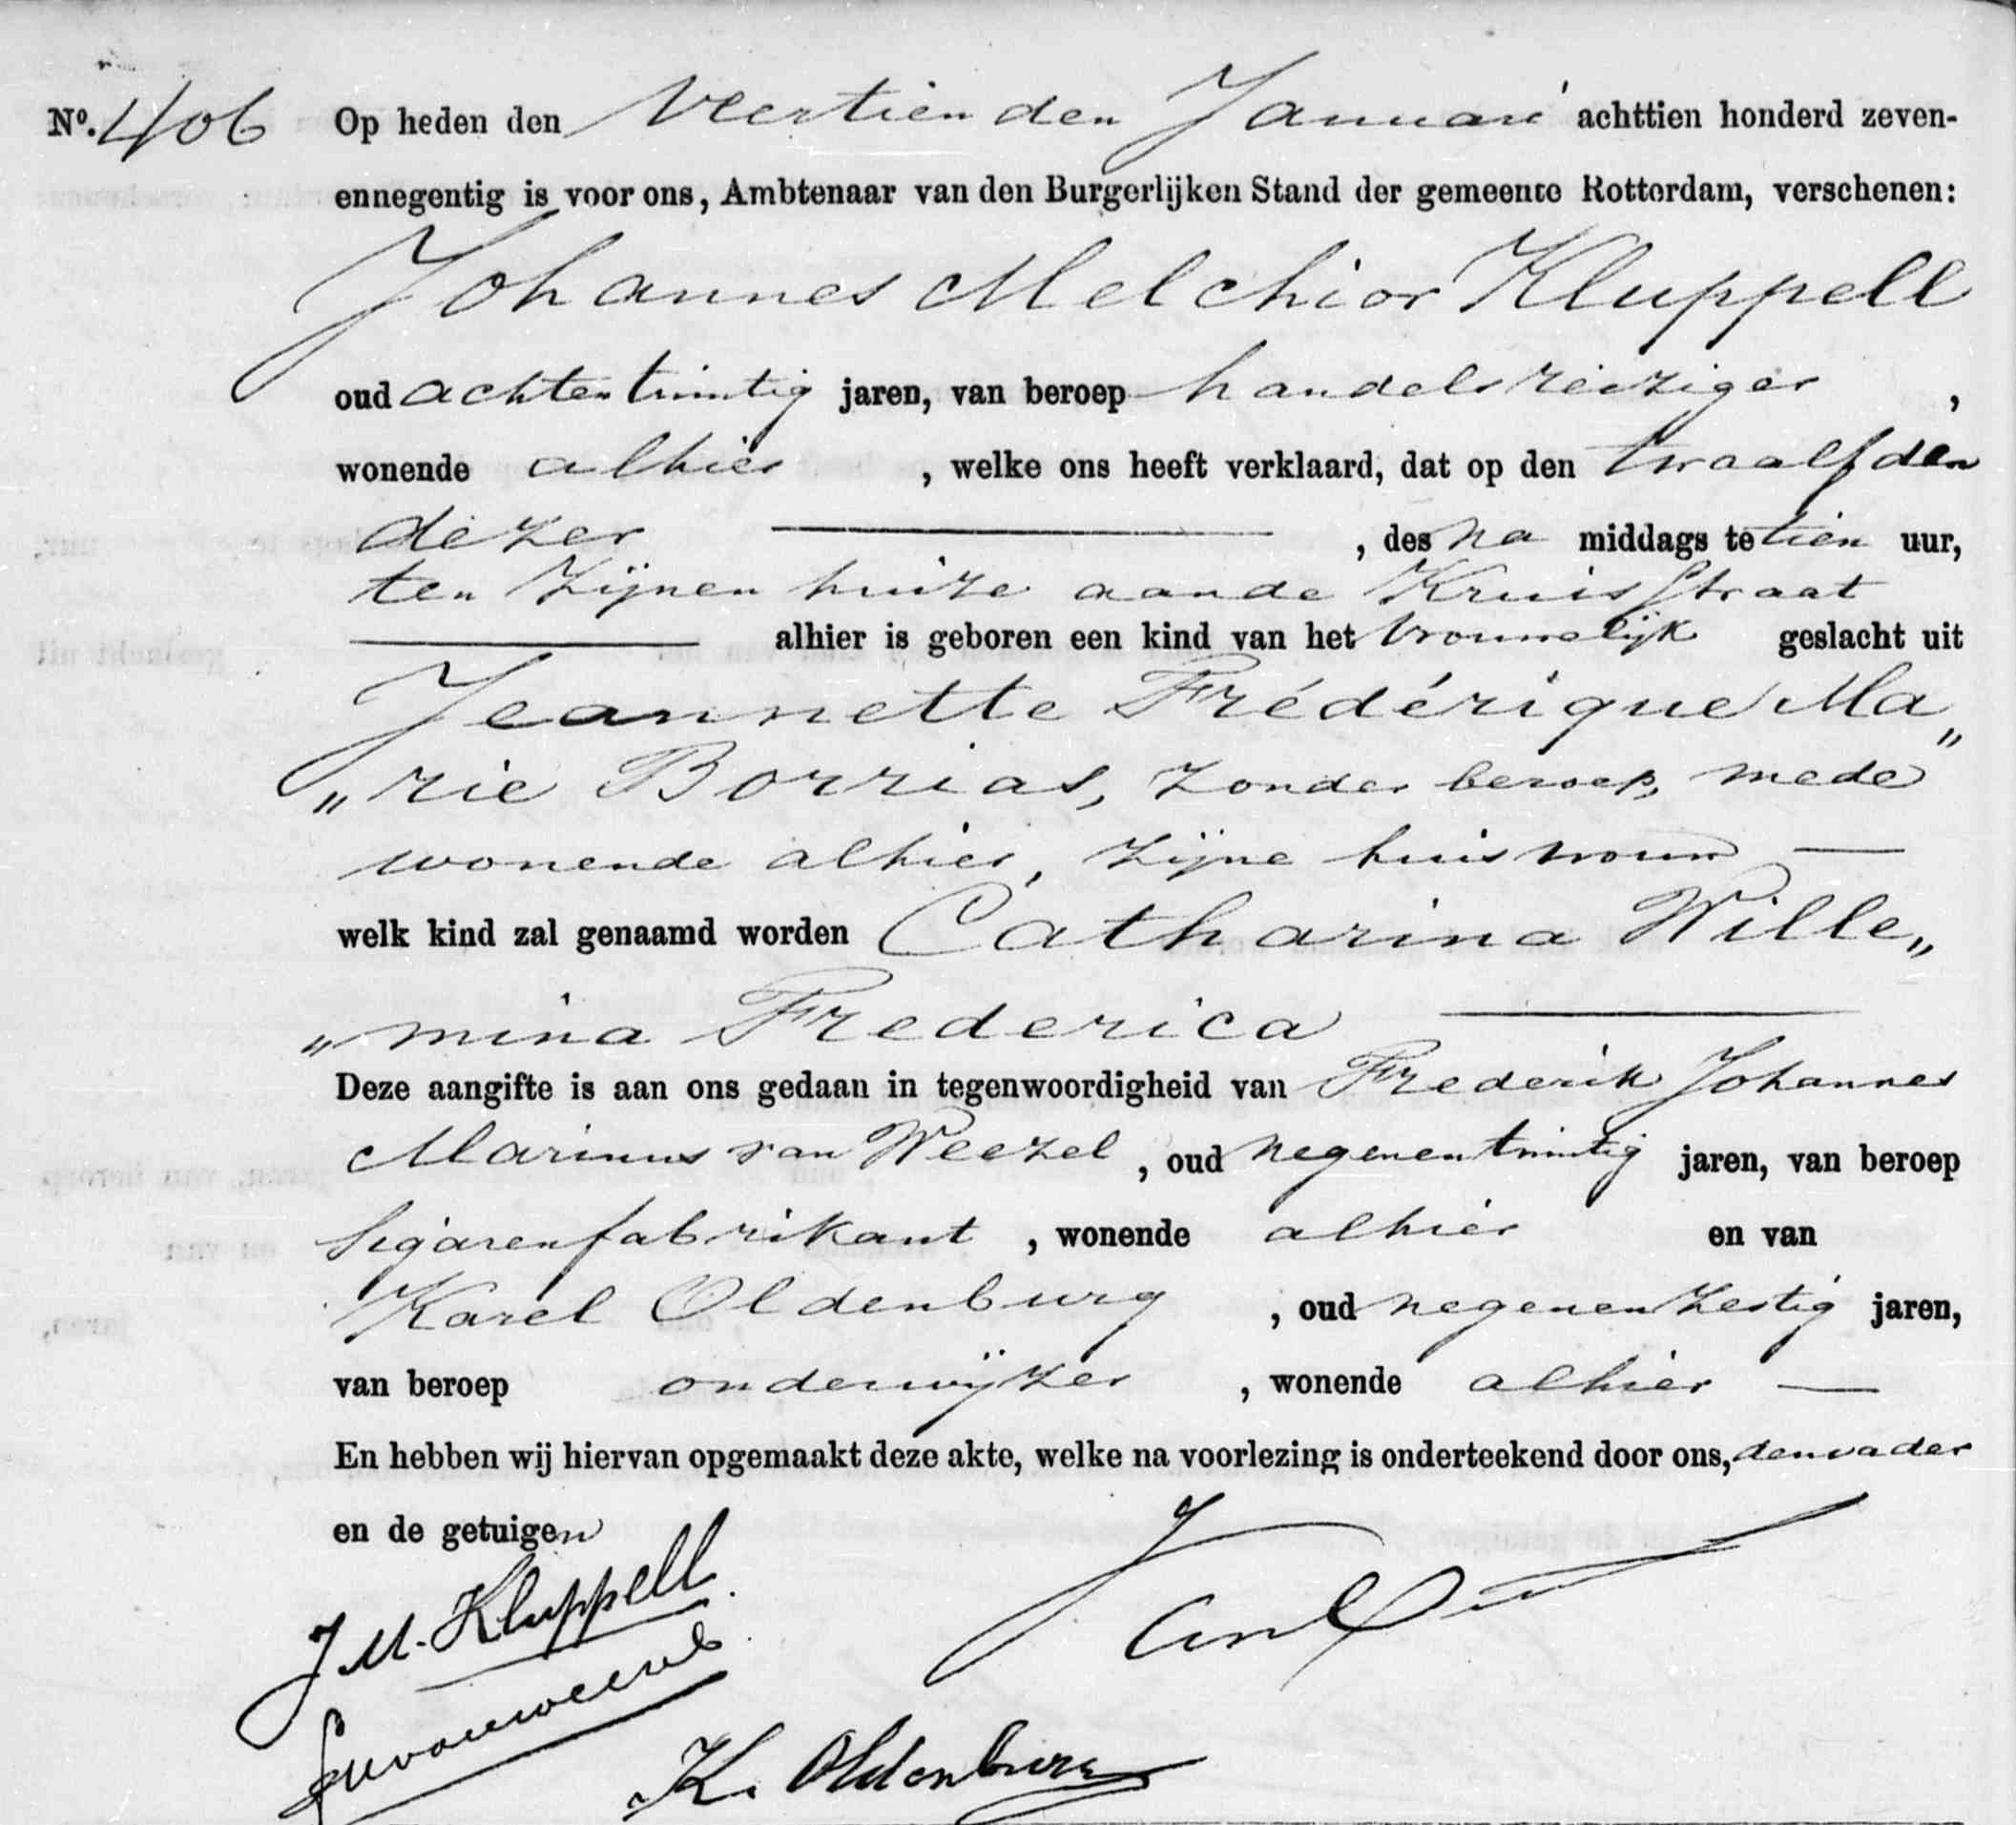 No. 406 Op heden den Veertienden Januari achttien honderd zeven-
ennegentig is voor ons, Ambtenaar van den Burgerlijken Stand der gemeente Rotterdam, verschenen:
Johannes Melchior Kluppell
oud achtentwintig jaren, van beroep handelsreiziger ,
wonende alhier , welke ons heeft verklaard, dat op den twaalfden
dezer , des na middags te tien uur,
ten zijnen huize aan de Kruisstraat
alhier is geboren een kind van het vrouwelijk geslacht uit
Jeannette Frédérique Ma„
„rie Borrias, zonder beroep, mede
wonende alhier, zijne huisvrouw
welk kind zal genaamd worden Catharina Wille„
„mina Frederica
Deze aangifte is aan ons gedaan in tegenwoordigheid van Frederik Johannes
Marinus van Weezel , oud negenentwintig jaren, van beroep
sigarenfabrikant , wonende alhier en van
Karel Oldenburg , oud negenenzestig jaren,
van beroep onderwijzer , wonende alhier
En hebben wij hiervan opgemaakt deze akte, welke na voorlezing is onderteekend door ons, den vader
en de getuigen
J M. Kluppell
K. Oldenburg